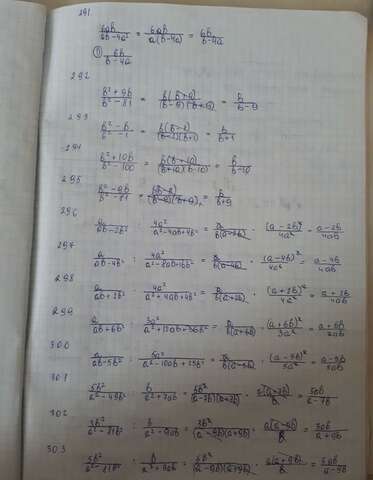 291
6ab/ab-4a² = 6ab/a(b-4a) = 6b/b-4a
① 6b/b-4a
292
b²+9b/b²-81 = b(b+9)/(b-9)(b+9) = b/b-9
293
b²-b/b²-1 = b(b-1)/(b-1)(b+1) = b/b+1
294
b²+10b/b²-100 = b(b+10)/(b+10)(b-10) = b/b-10
295
b²-9b/b²-81 = b(b-9)/(b-9)(b+9) = b/b+9
296
a/ab-2b² : 4a²/a²-4ab+4b² = a/b(a-2b) · (a-2b)²/4a² = a-2b/4ab
297
a/ab-4b² : 4a²/a²-8ab+16b² = a/b(a-4b) · (a-4b)²/4a² = a-4b/4ab
298
a/ab+2b² : 4a²/a²+4ab+4b² = a/b(a+2b) · (a+2b)²/4a² = a+2b/4ab
299
a/ab+6b² : 3a²/a²+12ab+36b² = a/b(a+6b) · (a+6b)²/3a² = a+6b/3ab
300
a/ab-5b² : 5a²/a²-10ab+25b² = a/b(a-5b) · (a-5b)²/5a² = a-5b/5ab
301
5b²/a²-49b² : b/a²+7ab = 5b²/(a-7b)(a+7b) · a(a+7b)/b = 5ab/a-7b
302
3b²/a²-81b² : b/a²-9ab = 3b²/(a-9b)(a+9b) · a(a-9b)/b = 3ab/a+9b
303
5b²/a²-81b² : b/a²+9ab = 5b²/(a-9b)(a+9b) · a(a+9b)/b = 5ab/a-9b